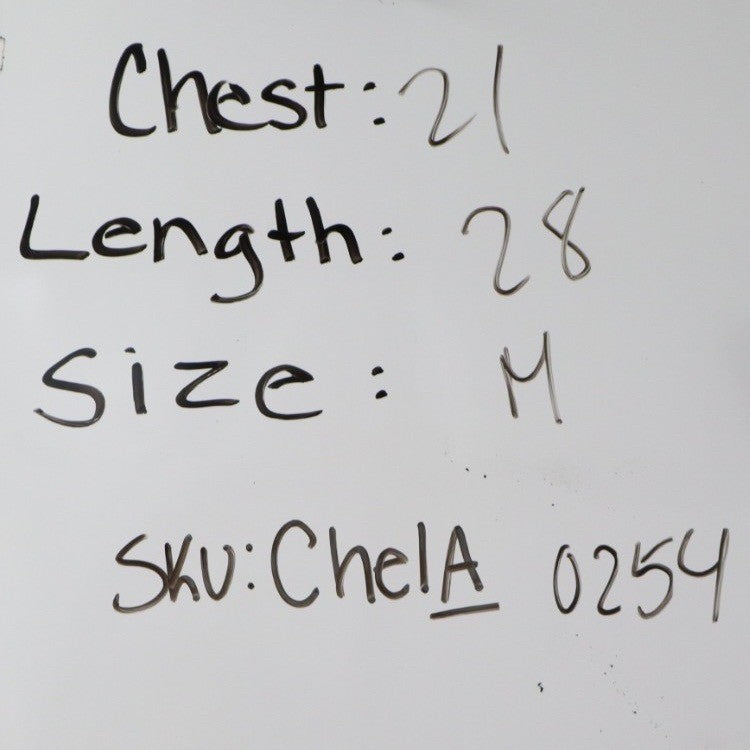 Chest: 21
Length: 28
Size: M
SKU: ChelA 0254